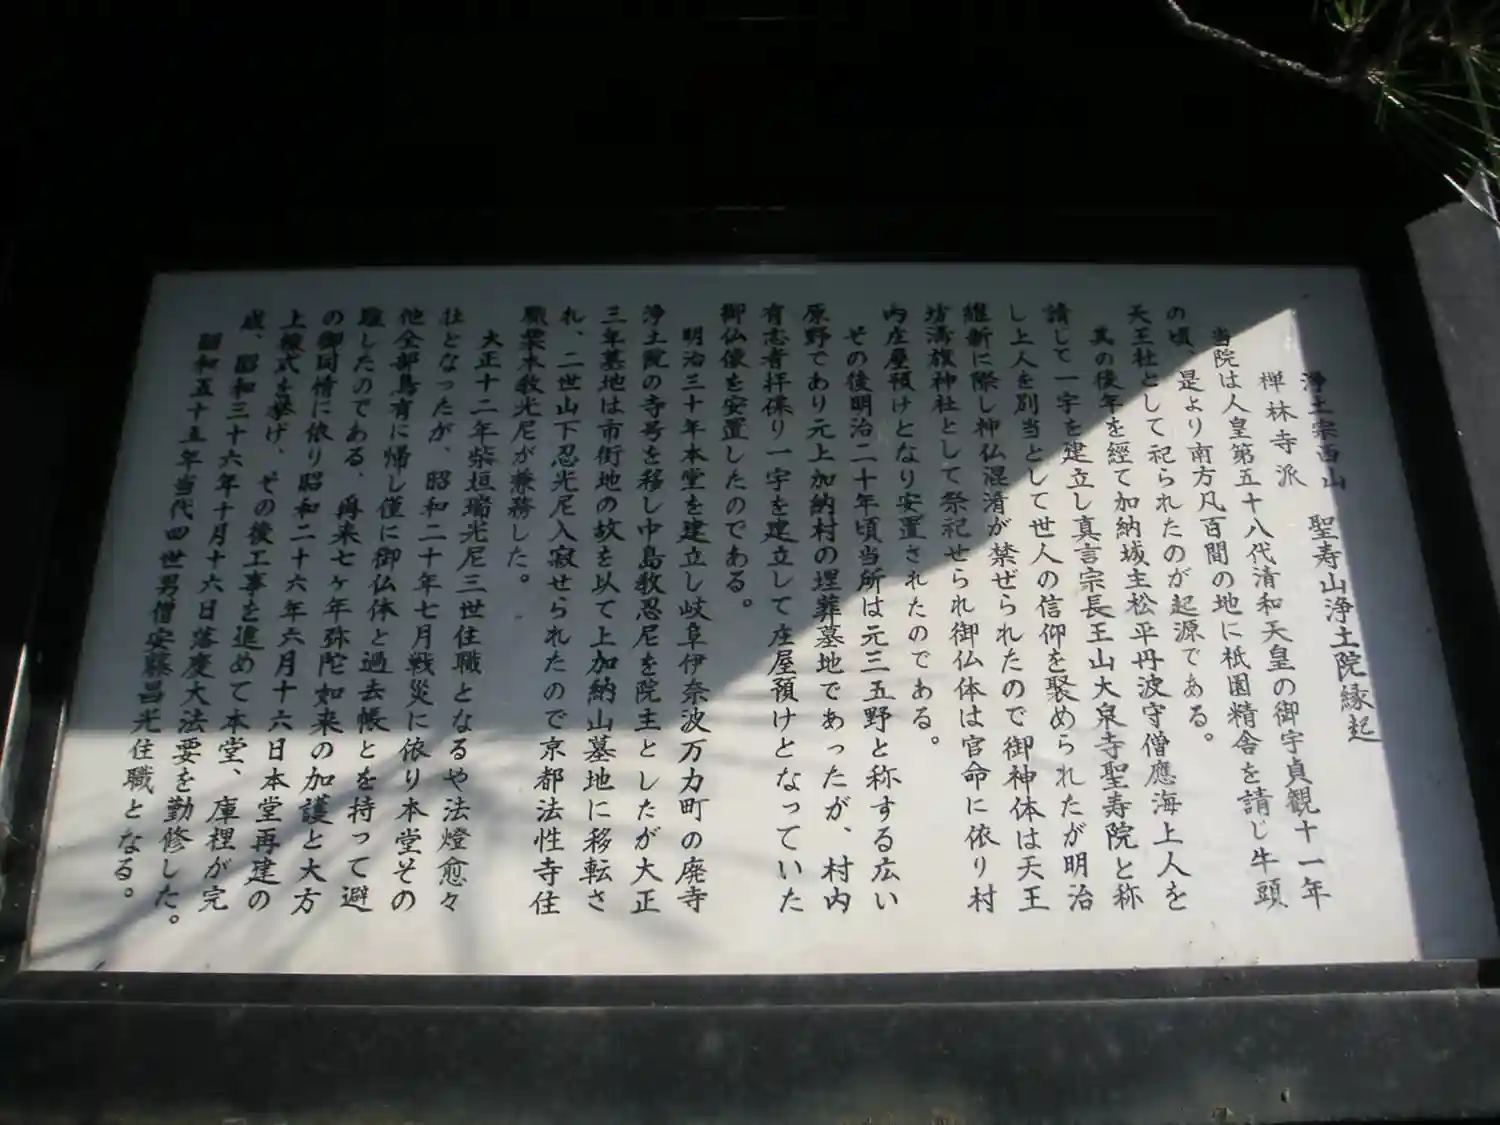 浄土宗西山
禅林寺派　聖寿山浄土院縁起
当院は人皇第五十八代清和天皇の御宇貞観十一年
の頃、是より南方凡百間の地に祇園精舎を請じ牛頭
天王社として祀られたのが起源である。
其の後年を経て加納城主松平丹波守僧應海上人を
請じて一宇を建立し真言宗長王山大泉寺聖寿院と称
し上人を別当として世人の信仰を聚められたが明治
維新に際し神仏混淆が禁ぜられたので御神体は天王
坊清旗神社として祭祀せられ御仏体は官命に依り村
内庄屋預けとなり安置されたのである。
その後明治二十年頃当所は元三五野と称する広い
原野であり元上加納村の埋葬墓地であったが、村内
有志者拝保り一宇を建立して庄屋預けとなっていた
御仏像を安置したのである。
明治三十年本堂を建立し岐阜伊奈波万力町の廃寺
浄土院の寺号を移し中島教忍尼を院主としたが大正
三年墓地は市街地の故を以て上加納山墓地に移転さ
れ、二世山下忍光尼入寂せられたので京都法性寺住
職梁本教光尼が兼務した。
大正十二年柴垣瑞光尼三世住職となるや法燈愈々
壮となったが、昭和二十年七月戦災に依り本堂その
他全部烏有に帰し僅に御仏体と過去帳とを持って避
難したのである、爾来七ヶ年弥陀如来の加護と大方
の御同情に依り昭和二十六年六月十六日本堂再建の
上棟式を挙げ、その後工事を進めて本堂、庫裡が完
成、昭和三十六年十月十六日落慶大法要を勤修した。
昭和五十五年当代四世男僧安藤昌光住職となる。